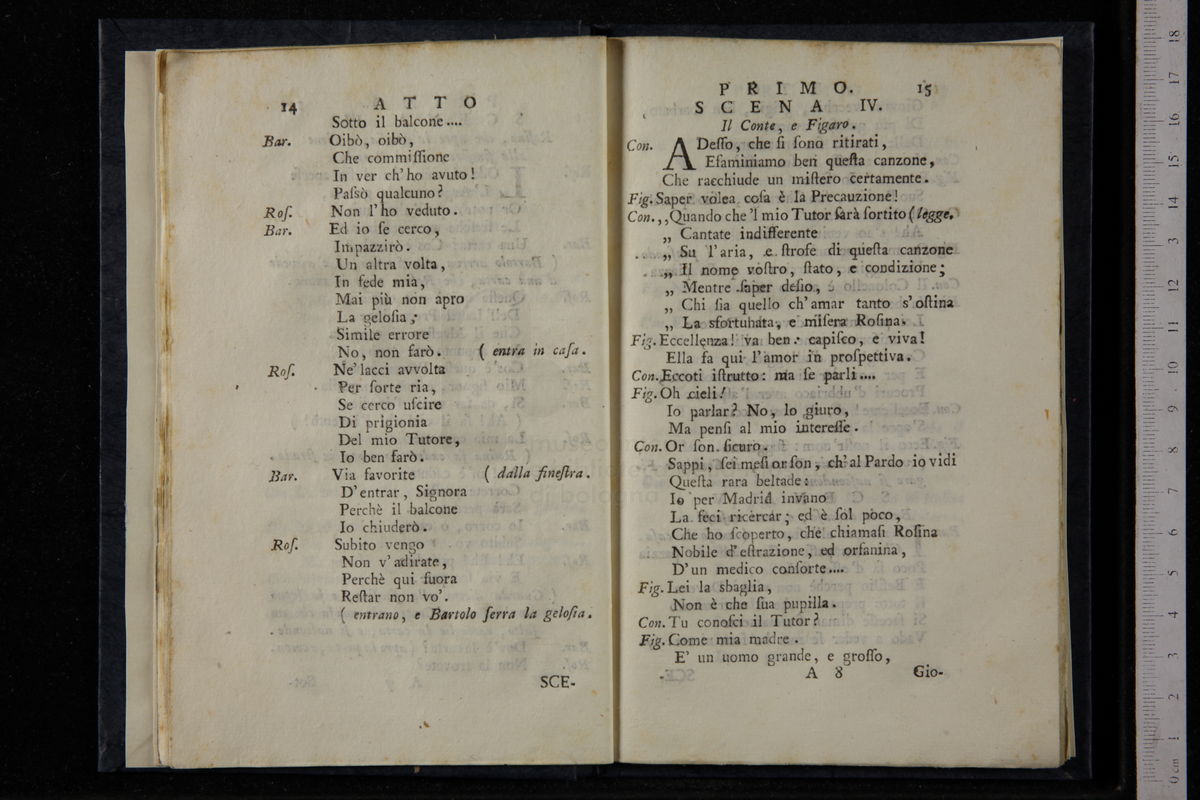 14 ATTO
Sotto il balcone....
Bar. Oibò, oibò,
Che commiſſione
In ver ch'ho avuto!
Paſsò qualcuno?
Roſ. Non l'ho veduto.
Bar. Ed io ſe cerco,
Impazzirò.
Un altra volta,
In fede mia,
Mai più non apro
La geloſia;
Simile errore
No, non farò. ( entra in caſa.
Roſ. Ne' lacci avvolta
Per ſorte ria,
Se cerco uſcire
Di prigionia
Del mio Tutore,
Io ben farò.
Bar. Via favorite ( dalla fineſtra.
D'entrar, Signora
Perchè il balcone
Io chiuderò.
Roſ. Subito vengo
Non v'adirate,
Perchè qui fuora
Reſtar non vo'.
( entrano, e Bartolo ſerra la geloſia.
SCE-
PRIMO. 15
SCENA IV.
Il Conte, e Figaro.
Con. ADeſſo, che ſi ſono ritirati,
Eſaminiamo ben queſta canzone,
Che racchiude un miſtero certamente.
Fig. Saper volea coſa è la Precauzione!
Con. ,,Quando che 'l mio Tutor ſarà ſortito ( legge.
„ Cantate indifferente
„ Su l'aria, e ſtrofe di queſta canzone
„ Il nome voſtro, ſtato, e condizione;
„ Mentre ſaper deſio,
„ Chi ſia quello ch'amar tanto s'oſtina
„ La sfortunata, e miſera Roſina.
Fig. Eccellenza! va ben: capiſco, e viva!
Ella fa qui l'amor in proſpettiva.
Con. Eccoti iſtrutto: ma ſe parli....
Fig. Oh cieli!
Io parlar? No, lo giuro,
Ma penſi al mio intereſſe.
Con. Or ſon ſicuro.
Sappi, ſei meſi or ſon, ch'al Pardo io vidi
Queſta rara beltade:
Io per Madrid invano
La feci ricercar; ed è ſol poco,
Che ho ſcoperto, che chiamaſi Roſina
Nobile d'eſtrazione, ed orfanina,
D'un medico conſorte....
Fig. Lei la sbaglia,
Non è che ſua pupilla.
Con. Tu conoſci il Tutor?
Fig. Come mia madre.
E' un uomo grande, e groſſo,
A 8 Gio-